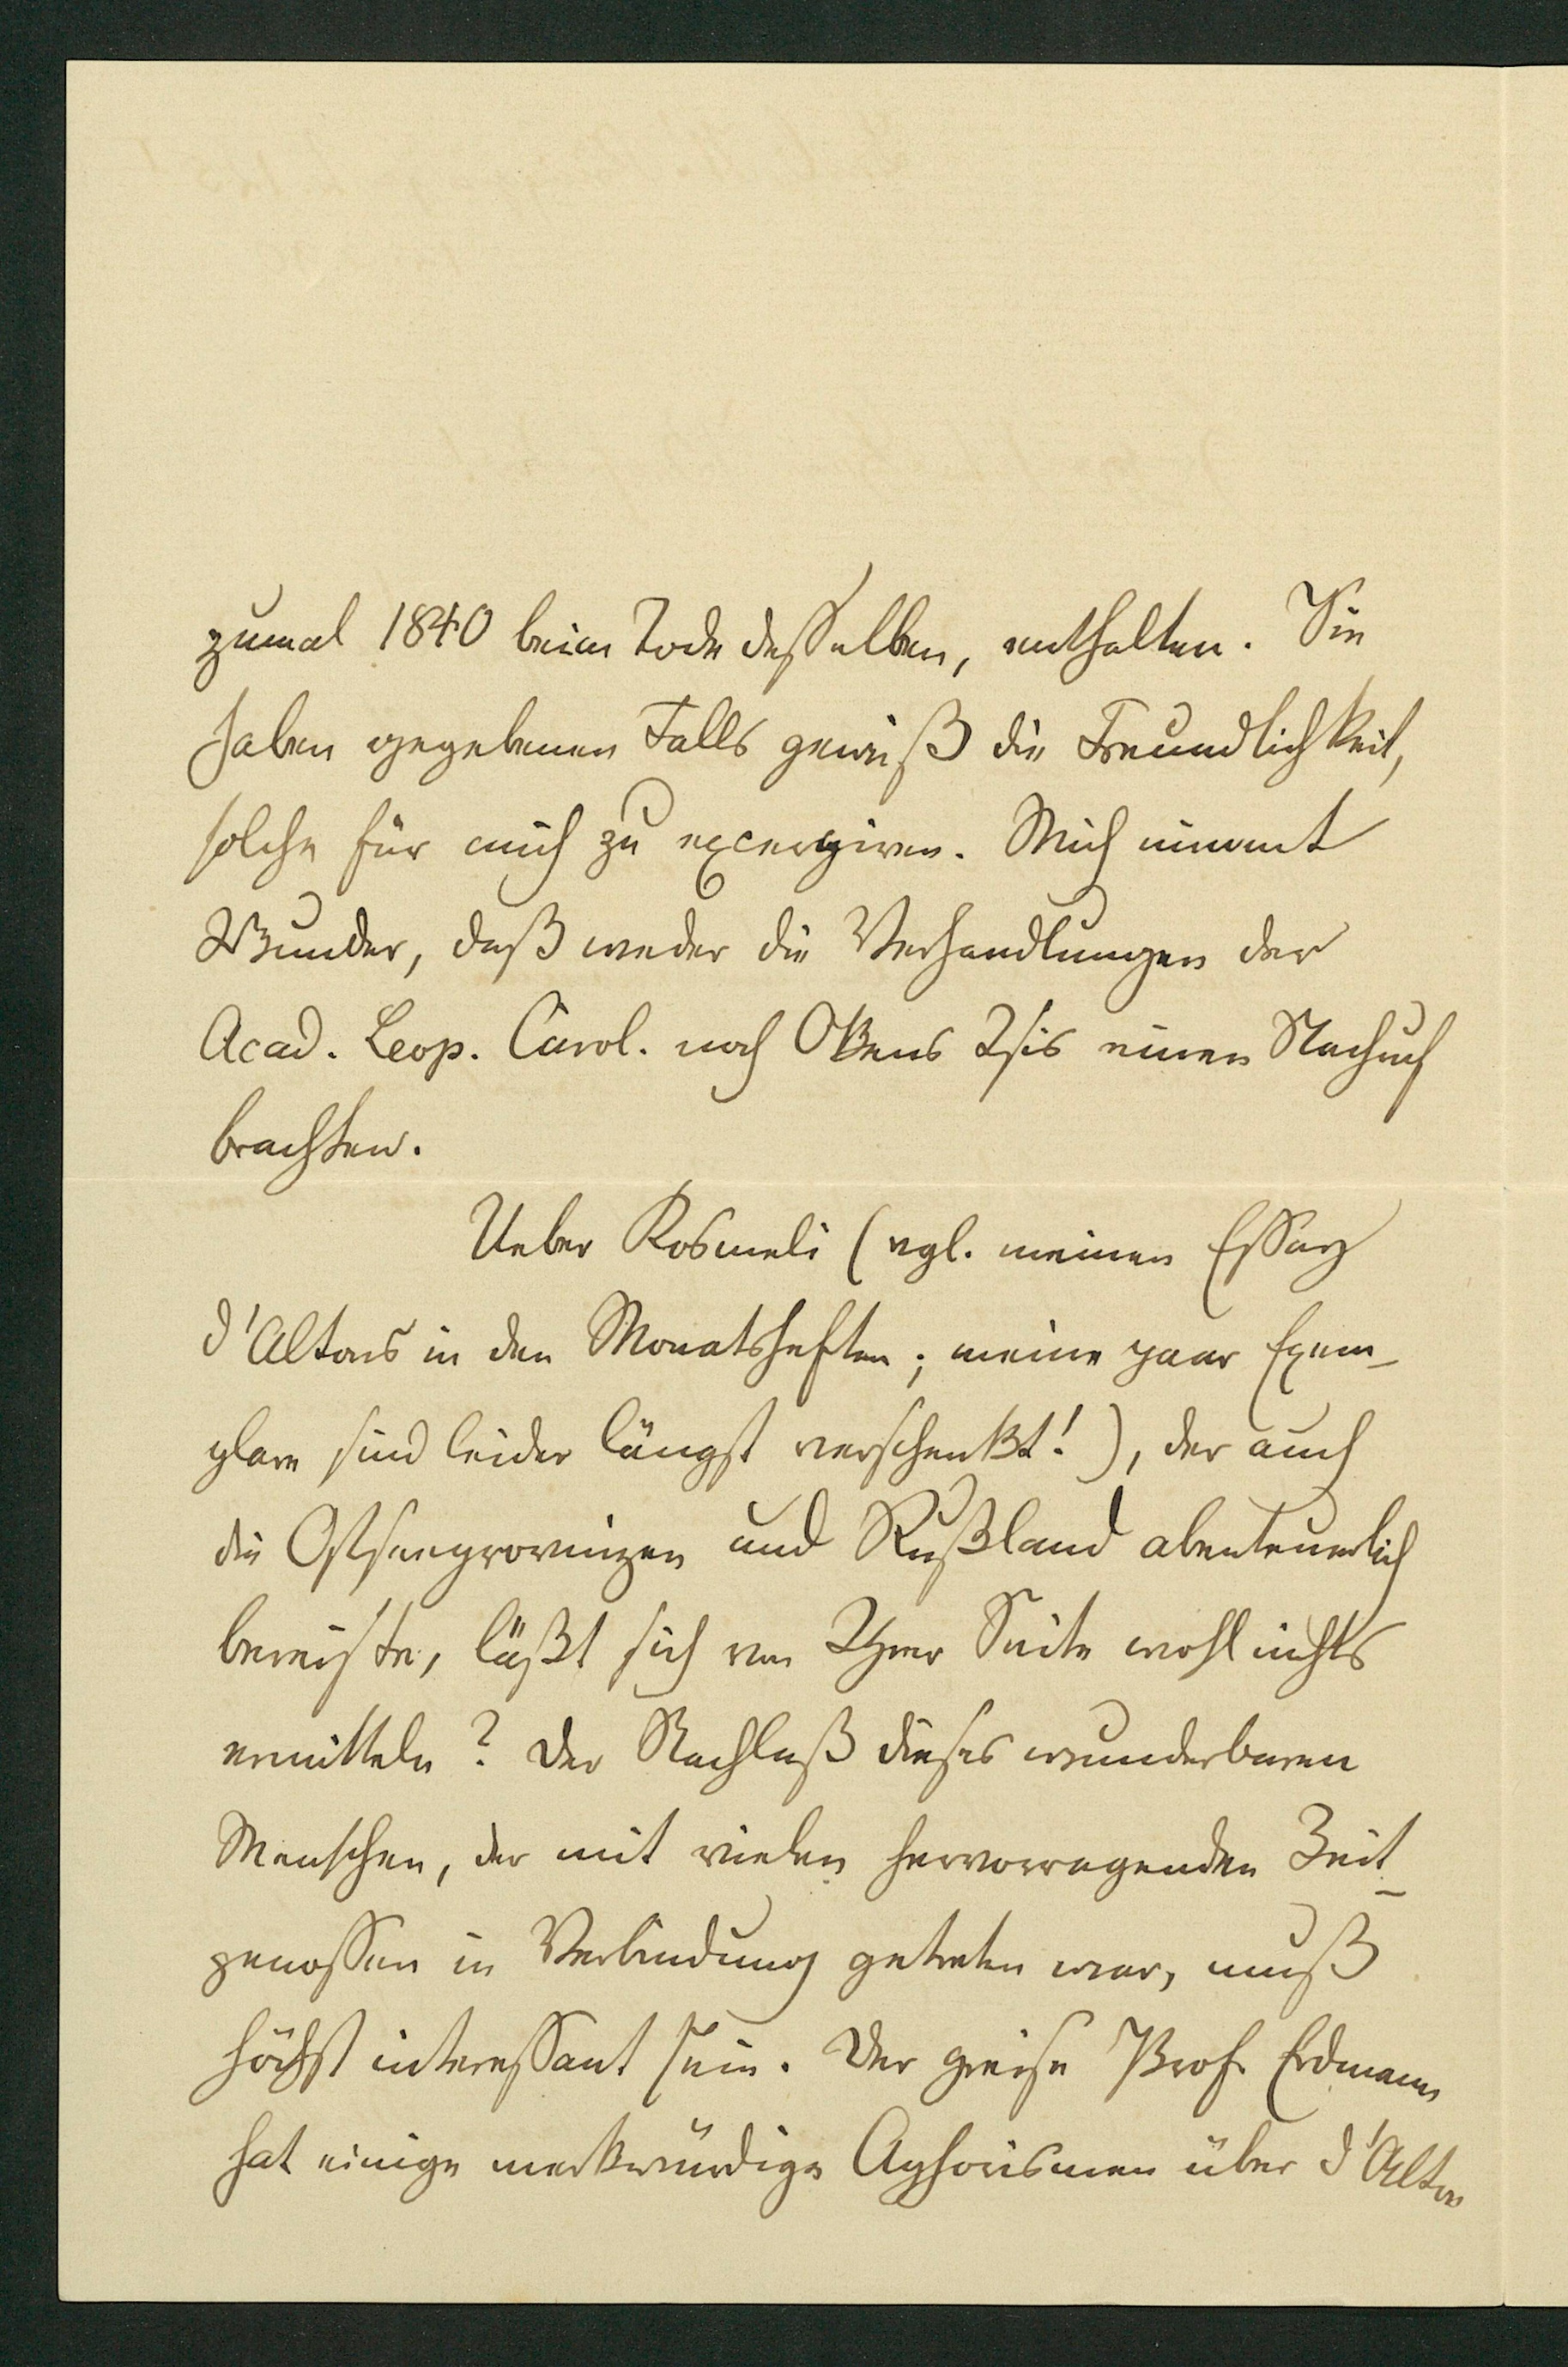 zumal 1840 beim Tode desselben, enthalten. Sie
haben gegebenen Falls gewiß die Freundlichkeit,
solche für mich zu excerpiren. Mich nimmt
Wunder, daß weder die Verhandlungen der
Acad. Leop. Carol. noch Okens Isis einen Nachruf
brachten.
Ueber Kosmeli (vgl. meinen Essay
d'Altons in den Monatsheften; meine paar Exem-
plare sind leider längst verschenkt!), der auch
die Ostseeprovinzen und Rußland abenteuerlich
bereiste, läßt sich von Ihrer Seite wohl nichts
ermitteln? Der Nachlaß dieses wunderbaren
Menschen, der mit vielen hervorragenden Zeit-
genossen in Verbindung getreten war, muß
höchst interessant sein. Der greise Prof. Erdmann
hat einige merkwürdige Aphorismen über d'Alton